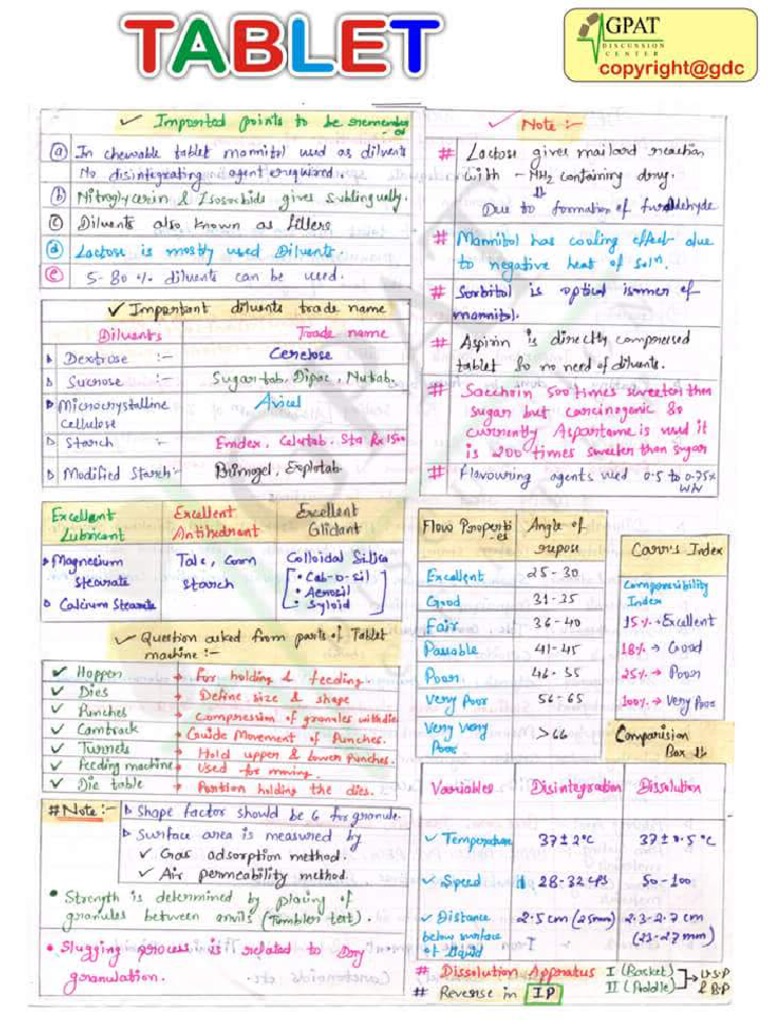 TABLET
GPAT
DISCUSSION
CENTER
copyright@gdc
✓ Imported points to be remember
ed
(a) In chewable tablet mannitol used as diluents
No disintegrating agent required.
(b) Nitroglycerin & Isosorbide gives sublingually.
(c) Diluents also known as fillers
(d) Lactose is mostly used Diluents.
(e) 5-80% diluents can be used.
✓ Important diluents trade name
Diluents Trade name
Dextrose :- Cerelose
Sucrose :- Sugartab, Dipac, Nutab.
Microcrystalline Avicel
cellulose
Starch :- Emdex, Celutab, Sta Rx 1500
Modified Starch :- Primogel, Explotab
Excellent Excellent Excellent
Lubricant Antiadherant Glidant
Magnesium Talc, Corn Colloidal Silica
stearate starch • Cab-o-sil
Calcium Stearate • Aerosil
• Syloid
✓ Question asked from parts of Tablet
machine :-
✓ Hopper → For holding & feeding.
✓ Dies → Define size & shape
✓ Punches → Compression of granules with die
✓ Camtrack → Guide Movement of Punches.
✓ Turrets → Hold upper & lower Punches.
✓ Feeding machine → Used for moving.
✓ Die table → Portion holding the dies.
#Note :- Shape factor should be 6 for granule.
Surface area is measured by
✓ Gas adsorption method.
✓ Air permeability method.
• Strength is determined by placing of
granules between anvils (Tumbler test).
• Slugging process is related to Dry
granulation.
✓ Note :-
# Lactose gives mailard reaction
with -NH2 containing drug.
⇓
Due to formation of furaldehyde
# Mannitol has cooling effect due
to negative heat of soln.
# Sorbitol is optical isomer of
mannitol.
# Aspirin is directly compressed
tablet so no need of diluents.
# Sacchrin 500 times sweeter then
sugar but carcinogenic so
currently Aspartame is used it
is 200 times sweeter than sugar
# Flavouring agents used 0.5 to 0.75%
W/W
Flow Properti Angle of
es repose
Excellent 25-30
Good 31-35
Fair 36-40
Passable 41-45
Poor 46-55
Very Poor 56-65
Very Very >66
Poor
Carr's Index
Compressibility
Index
15% → Excellent
18% → Good
25% → Poor
100% → Very Poor
Comparision
Box ⇓
Variables Disintegration Dissolution
✓ Temperature 37±2°C 37±0.5°C
✓ Speed 28-32 cps 50-100
✓ Distance 2.5cm (25mm) 2.3-2.7 cm
below surface (23-27mm)
of liquid
# Dissolution Apparatus I (Basket) U.S.P
II (Paddle) & B.P
# Reverse in IP